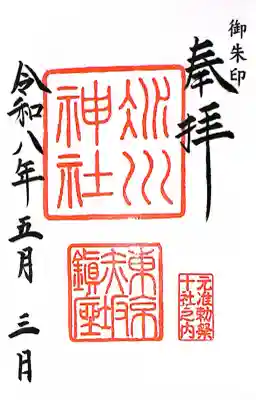 御朱印
奉拝
氷川
神社
東京
赤坂
鎮座
元准勅祭
十社之内
令和八年五月三日